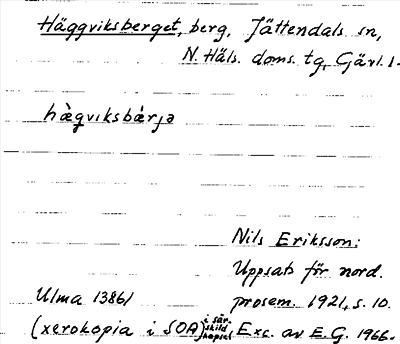 Häggviksberget, berg, Jättendals sn,
N. Häls. doms. tg, Gävl. l.
hàgviksbær̀jə
Nils Eriksson:
Uppsats för nord.
Ulma 13861 prosem. 1921, s. 10.
(xerokopia i SOA) i sär-skild kapsel Exc. av E.G. 1966.